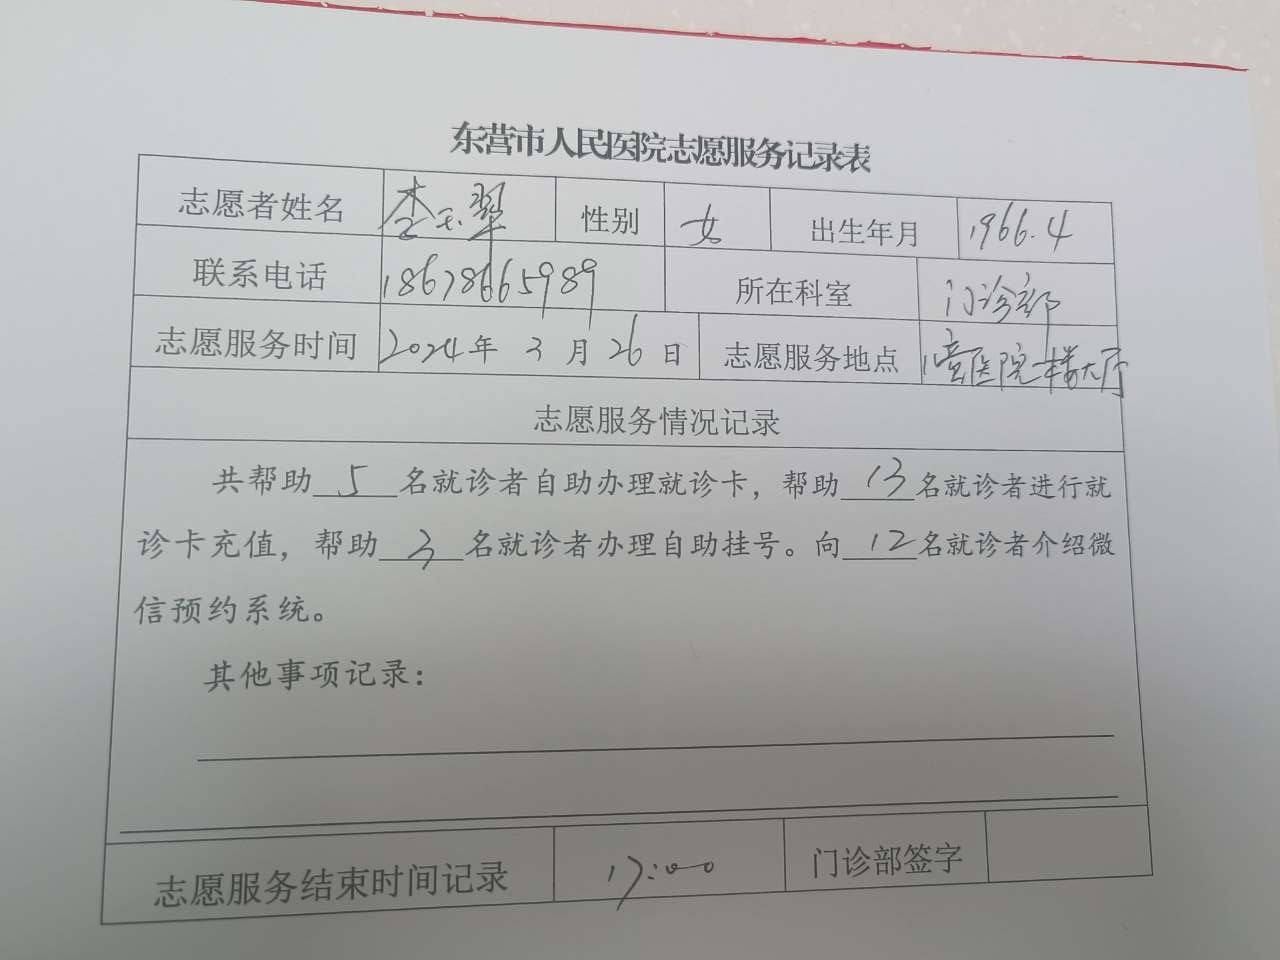 东营市人民医院志愿服务记录表
志愿者姓名 李玉翠 性别 女 出生年月 1966.4
联系电话 18678665989 所在科室 门诊部
志愿服务时间 2024年 3 月 26 日 志愿服务地点 儿童医院一楼大厅
志愿服务情况记录
共帮助 5 名就诊者自助办理就诊卡，帮助 13 名就诊者进行就
诊卡充值，帮助 3 名就诊者办理自助挂号。向 12 名就诊者介绍微
信预约系统。
其他事项记录：
志愿服务结束时间记录 17:00 门诊部签字